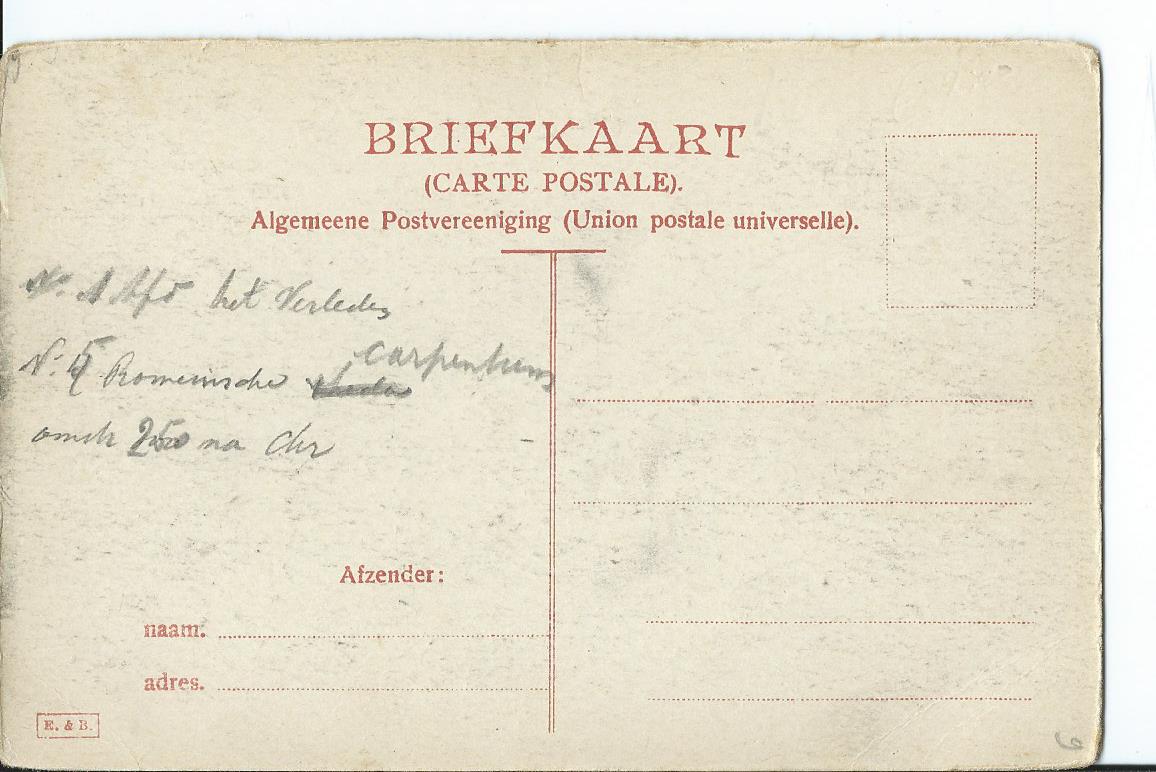 BRIEFKAART
(CARTE POSTALE).
Algemeene Postvereeniging (Union postale universelle).
het Verleden
Romeinsche
na Chr
Afzender:
naam.
adres.
E. & B.
6